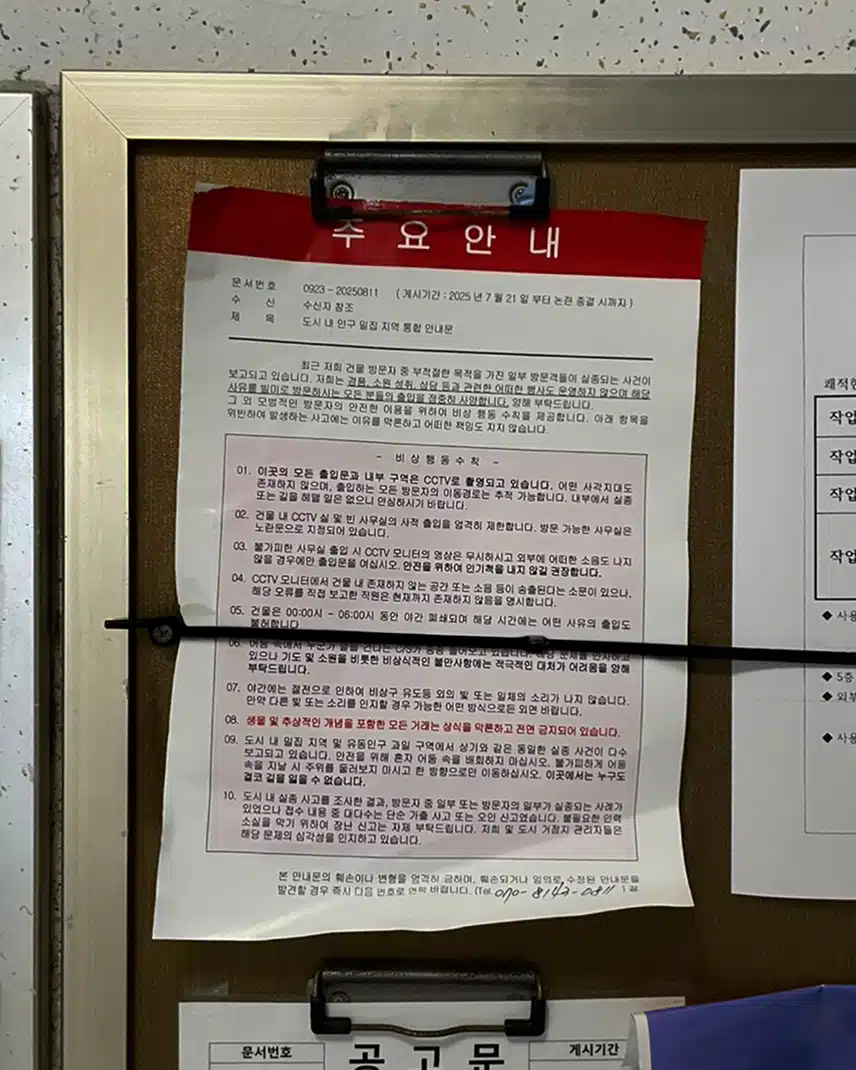 주 요 안 내
문서번호 0923 - 20250811 ( 게시기간 : 2025 년 7 월 21 일 부터 논란 종결 시까지 )
수 신 수신자 참조
제 목 도시 내 인구 밀집 지역 통합 안내문
최근 저희 건물 방문자 중 부적절한 목적을 가진 일부 방문객들이 실종되는 사건이
보고되고 있습니다. 저희는 경품, 소원 성취, 상담 등과 관련한 어떠한 행사도 운영하지 않으며 해당
사유를 빌미로 방문하시는 모든 분들의 출입을 정중히 사양합니다. 양해 부탁드립니다.
그 외 모범적인 방문자의 안전한 이용을 위하여 비상 행동 수칙을 제공합니다. 아래 항목을
위반하여 발생하는 사고에는 이유를 막론하고 어떠한 책임도 지지 않습니다.
- 비 상 행 동 수 칙 -
01. 이곳의 모든 출입문과 내부 구역은 CCTV로 촬영되고 있습니다. 어떤 사각지대도
존재하지 않으며, 출입하는 모든 방문자의 이동경로는 추적 가능합니다. 내부에서 실종
또는 길을 헤맬 일은 없으니 안심하시기 바랍니다.
02. 건물 내 CCTV 실 및 빈 사무실의 사적 출입을 엄격히 제한합니다. 방문 가능한 사무실은
노란문으로 지정되어 있습니다.
03. 불가피한 사무실 출입 시 CCTV 모니터의 영상은 무시하시고 외부에 어떠한 소음도 나지
않을 경우에만 출입문을 여십시오. 안전을 위하여 인기척을 내지 않길 권장합니다.
04. CCTV 모니터에서 건물 내 존재하지 않는 공간 또는 소음 등이 송출된다는 소문이 있으나,
해당 오류를 직접 보고한 직원은 현재까지 존재하지 않음을 명시합니다.
05. 건물은 00:00시 - 06:00시 동안 야간 폐쇄되며 해당 시간에는 어떤 사유의 출입도
불허합니다.
06. 어둠 속에서 누군가 말을 건다는
있으나 기도 및 소원을 비롯한 비상식적인 불만사항에는 적극적인 대처가 어려움을 양해
부탁드립니다.
07. 야간에는 절전으로 인하여 비상구 유도등 외의 빛 또는 일체의 소리가 나지 않습니다.
만약 다른 빛 또는 소리를 인지할 경우 가능한 어떤 방식으로든 외면 바랍니다.
08. 생물 및 추상적인 개념을 포함한 모든 거래는 상식을 막론하고 전면 금지되어 있습니다.
09. 도시 내 밀집 지역 및 유동인구 과밀 구역에서 상기와 같은 동일한 실종 사건이 다수
보고되고 있습니다. 안전을 위해 혼자 어둠 속을 배회하지 마십시오. 불가피하게 어둠
속을 지날 시 주위를 둘러보지 마시고 한 방향으로만 이동하십시오. 이곳에서는 누구도
결코 길을 잃을 수 없습니다.
10. 도시 내 실종 사고를 조사한 결과, 방문자 중 일부 또는 방문자의 일부가 실종되는 사례가
있었으나 접수 내용 중 대다수는 단순 가출 사고 또는 오인 신고였습니다. 불필요한 인력
소실을 막기 위하여 장난 신고는 자제 부탁드립니다. 저희 및 도시 거점지 관리자들은
해당 문제의 심각성을 인지하고 있습니다.
본 안내문의 훼손이나 변형을 엄격히 금하며, 훼손되거나 임의로 수정된 안내문을
발견할 경우 즉시 다음 번호로 연락 바랍니다. (Tel. 070-8143-0811 ) 끝
문서번호 공 고 문 게시기간
쾌적한
작업
작업
작업
작업
◆ 사용
◆ 5층
◆ 외부
◆ 사용